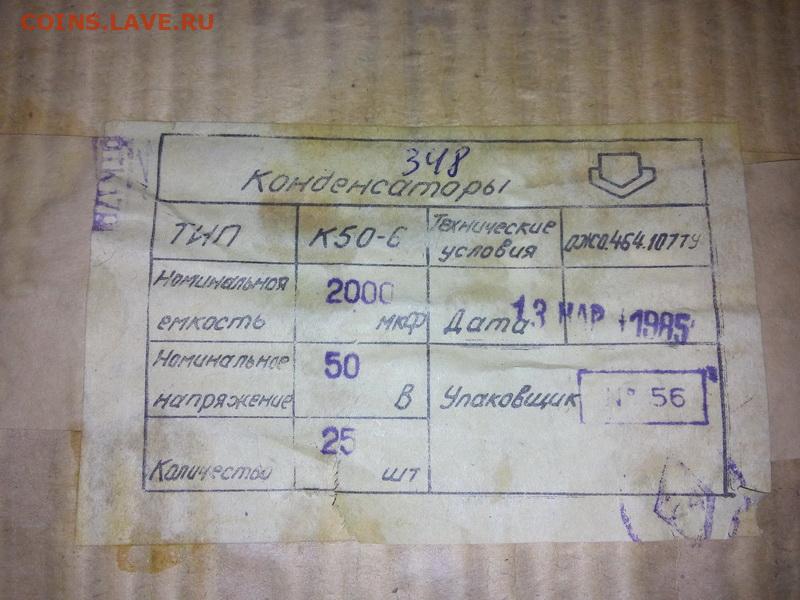 COINS.LAVE.RU
348
Конденсаторы
ТИП К50-6 Технические условия ОЖО.464.107ТУ
Номинальная емкость 2000 мкф Дата 13 МАР 1985
Номинальное напряжение 50 В Упаковщик № 56
Количество 25 шт